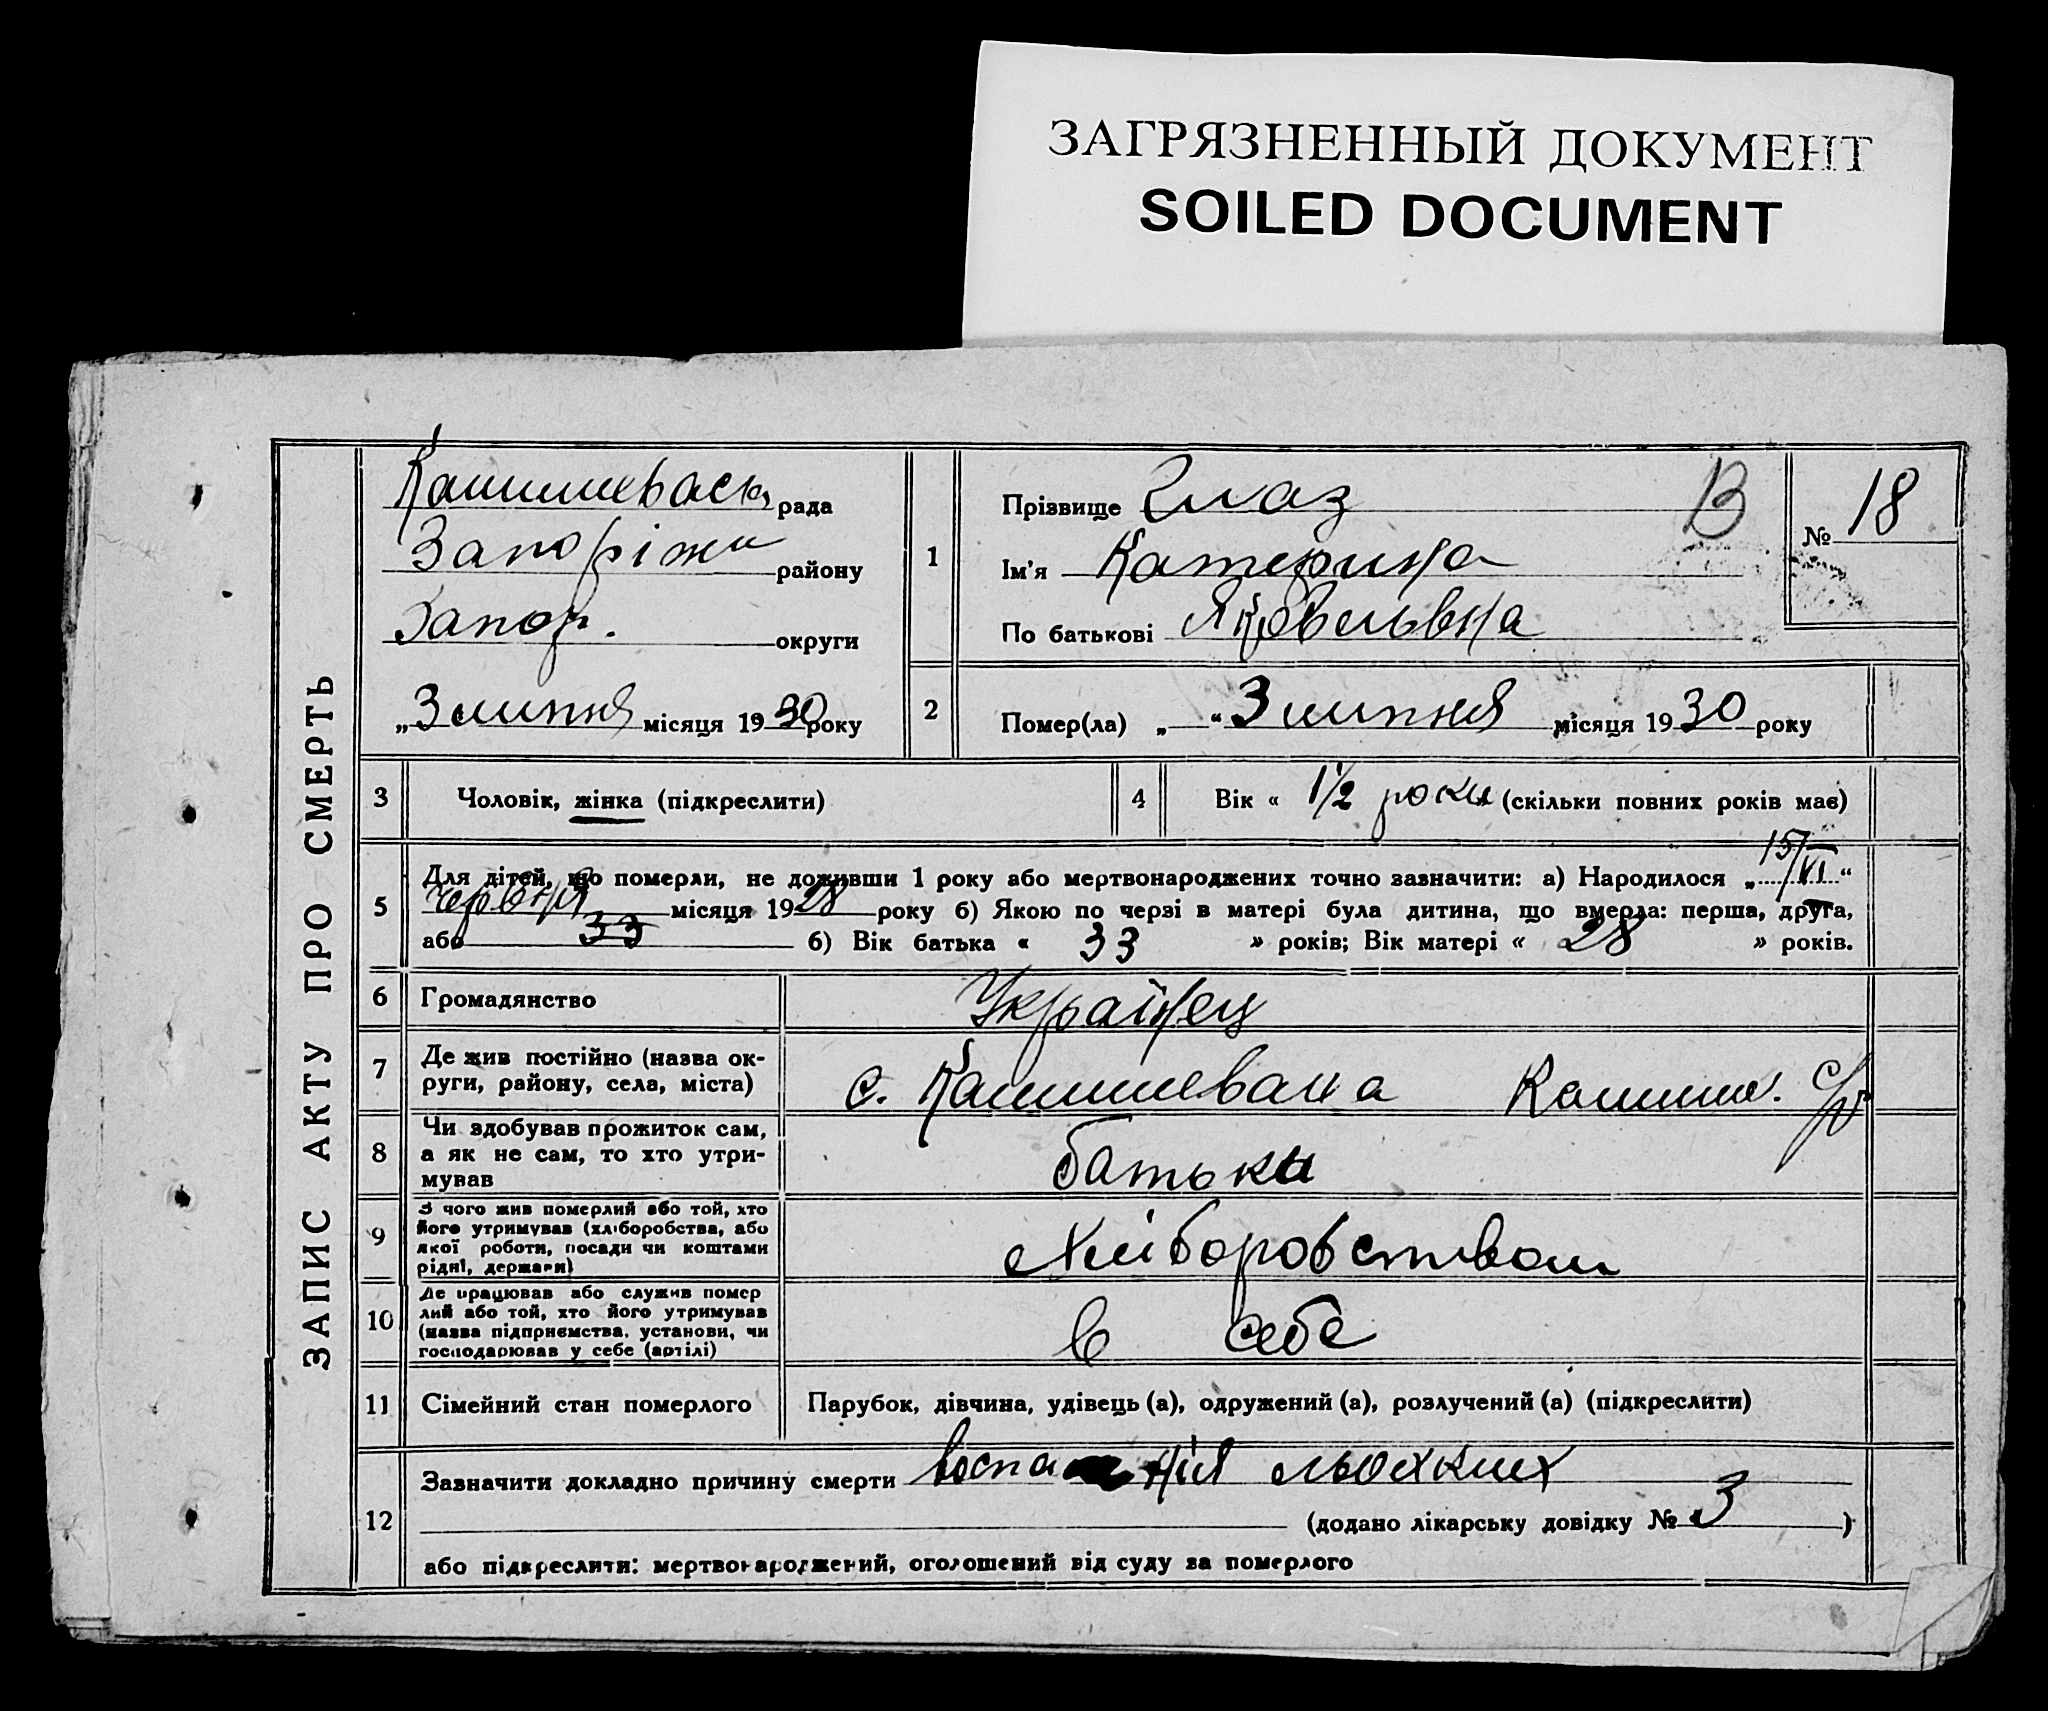 ЗАГРЯЗНЕННЫЙ ДОКУМЕНТ
SOILED DOCUMENT
ЗАПИС АКТУ ПРО СМЕРТЬ
рада
Запоріжж району
Запор. округи
„3 липня місяця 1930 року
1
Прізвище
В
№ 18
Ім'я Катерина
По батькові Яковельвна
2
Помер(ла) „ “ 3 липня місяця 1930 року
3
Чоловік, жінка (підкреслити)
4
Вік « 1 1/2 роки (скільки повних років має)
5
Для дітей, що померли, не доживши 1 року або мертвонароджених точно зазначити: а) Народилося „ 15/VI “
червня місяця 1928 року б) Якою по черзі в матері була дитина, що вмерла: перша, друга,
або 33 б) Вік батька « 33 » років; Вік матері « 28 » років.
6
Громадянство
Українец
7
Де жив постійно (назва ок-
руги, району, села, міста)
с. Камишеваха Камиш. с/р
8
Чи здобував прожиток сам,
а як не сам, то хто утри-
мував
батьки
9
З чого жив померлий або той, хто
його утримував (хліборобства, або
якої роботи, посади чи коштами
рідні, держави)
Хліборобством
10
Де працював або служив помер
лий або той, хто його утримував
(назва підприємства, установи, чи
господарював у себе (артілі)
в себе
11
Сімейний стан померлого
Парубок, дівчина, удівець (а), одружений (а), розлучений (а) (підкреслити)
12
Зазначити докладно причину смерти воспа нія льохких
(додано лікарську довідку № 3 )
або підкреслити: мертвонароджений, оголошений від суду за померлого